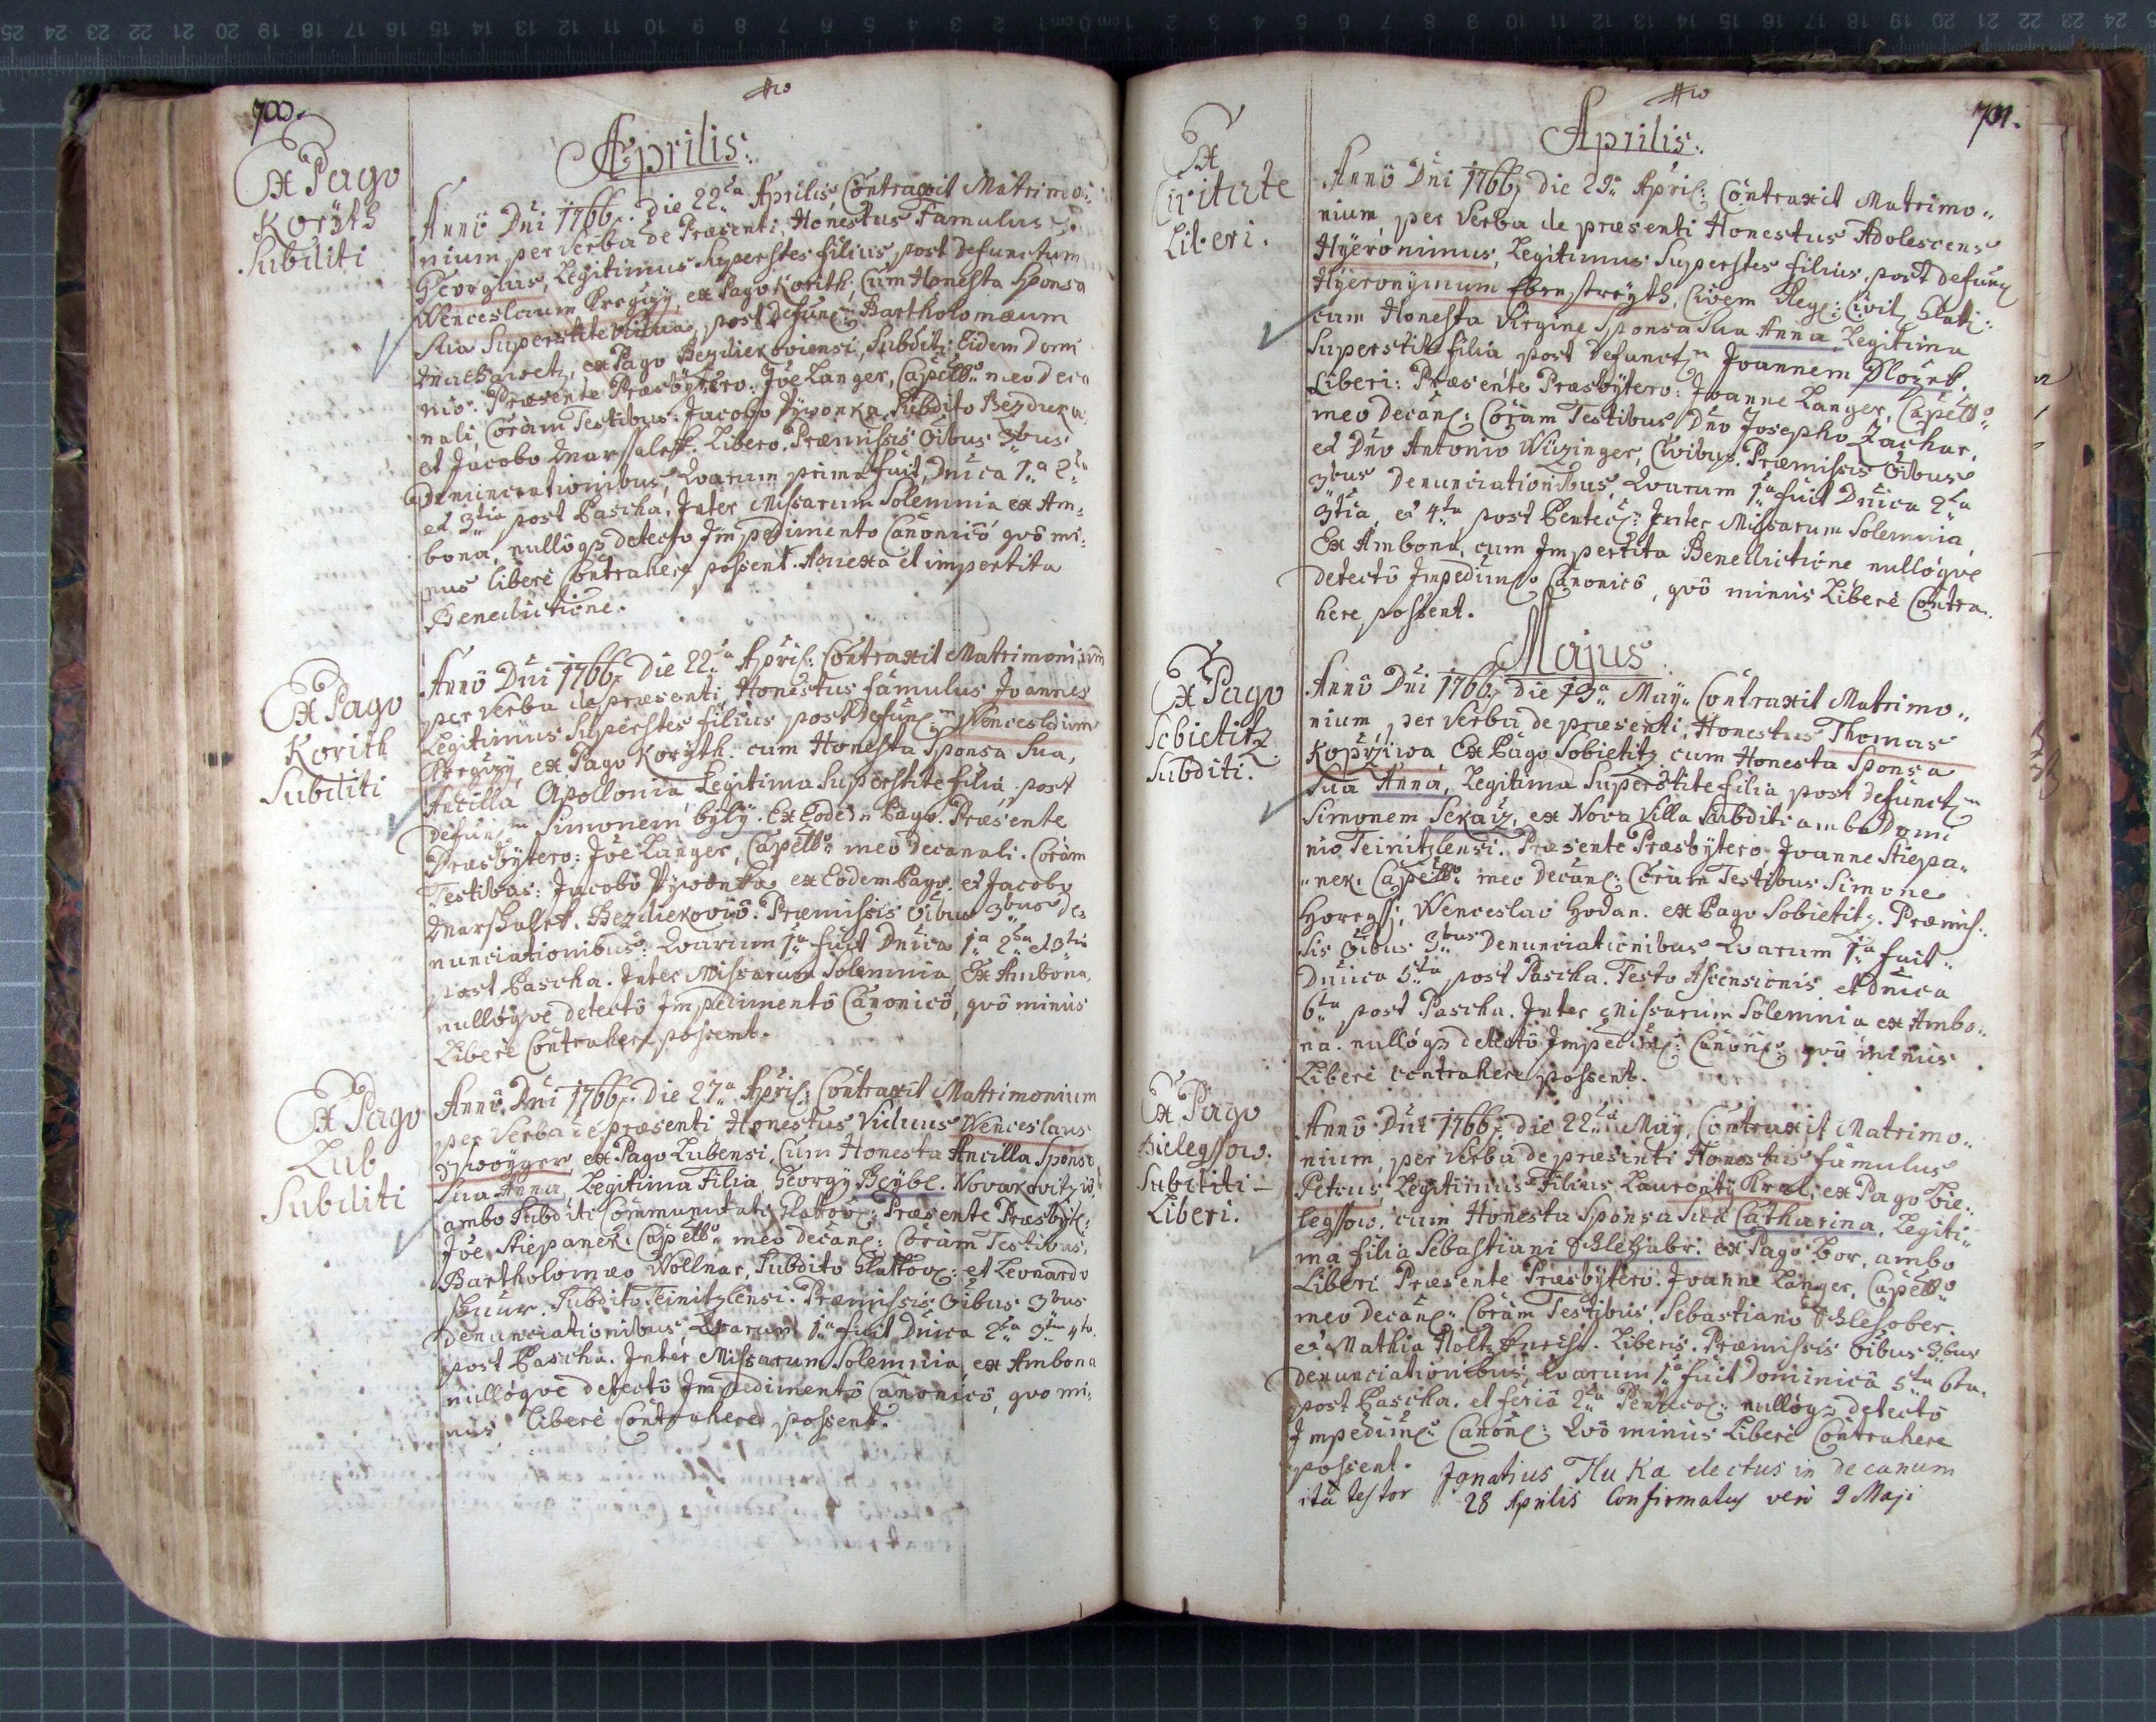 700.
Aprilis.
Ex Pago
Korÿth
Subditi
Annô Dni 1766. Die 22da Aprilis, Contraxit Matrimo:
nium per Verba de Præsenti, Honestus Famulus
Georgius, Legitimus Superstes filius post Defunctum
Wenceslaum ex Pago Korith, Cum Honesta Sponsa
Sua Superstite Vidua, post Defunc: Bartholomæum
ex Pago Bezdiekoviensi, Subditi Eidem Domi
nio. Præsente Præsbÿtero: Jõe Langer, Capello meo deca
nali, Coràm Testibus: Jacobo Pÿwonka, Subdito
et Jacobo Libero. Præmissis õibus 3bus
Denuncationibus, Qvarum prima fuit, Dnica 1a 2da
et 3tia post Pascha, Inter Missarum Solemnia ex Am:
bona, nullôq3 detecto Impedimento Canonicô, qvô mi:
nus liberè Contrahere possent. Annexa et impertita
Benedictione.
Ex Pago
Korith
Subditi
Annô Dni 1766. Die 22da April: Contraxit Matrimonium
per Verba de præsenti Honestus famulus Joannes
Legitimus Superstes filius post Defunc:m Wenceslaum
ex Pago Korÿth: cum Honesta Sponsa Sua,
Ancilla Apollonia Legitima Superstite filia, post
Defunc:m Simonem bÿlÿ. Ex Eodem Pago. Præsente
Præsbÿtero: Jõe Langer, Capello meo Decanali. Coràm
Testibus: Jacobô Pÿwonka ex Eodem Pago, et Jacobo
Marschalek. Bezdiekoviô. Præmissis õibus 3bus de:
nunciationibus: Qvarum 1a fuit Dnica 1a 2da et 3tia
post Pascha. Inter Missarum Solemnia, Ex Ambona,
nullôqve detectô Impedimentô Canonicô, qvô minus
Liberè Contrahere possent.
Ex Pago
Lub
Subditi
Annô Dni 1766. Die 27a April: Contraxit Matrimonium
per Verba de præsenti Honestus Viduus Wenceslaus
ex Pago Lubensi, Cum Honesta Ancilla Sponsa
Sua Anna, Legitima Filia Georgÿ Beÿbl.
ambo Subditi Communitati Præsente Præsbÿt:
Jõe Stiepanek Capello meo decan: Coràm Testibus,
Bartholomæo Wollnar, Subdito et Leonardo
Subdito Teinitzlensi. Præmissis õibus 3bus
denunciationibus, Qvarum 1a fuit Dnica 2da 3tia 4ta
post Pascha. Inter Missarum Solemnia, ex Ambona
nullôqve detectô Impedimentô Canonicô, qvo mi:
nus liberè Contrahere possent.
701.
Aprilis.
Ex
Civitate
Liberi.
Annô Dni 1766. die 29a April: Contraxit Matrimo:
nium per Verba de præsenti Honestus Adolescens
Hÿeronimus, Legitimus Superstes filius, post defunc
Hÿeronÿmum Civem Reg: Civit:
cum Honesta Virgine Sponsa Sua Anna Legitima
Superstite filia post Defunct:m Joannem
Liberi: Præsente Præsbÿtero: Joanne Langer, Capello
meo Decan: Coràm Testibus Dno Josepho Zachar,
et Dno Antonio Civibus. Præmissis õibus
3bus Denunciationibus, Qvarum 1a fuit Dnica 2da
3tia, et 4ta post Inter Missarum Solemnia,
Ex Ambona, cum Impertita Benedictione nullôqve
detectô Impedim:o Canonicô, qvô minùs Liberè Contra:
here possent.
Majus
Ex Pago
Sobietitz
Subditi.
Annô Dni 1766. die 13a Maÿ. Contraxit Matrimo:
nium, per Verba de præsenti, Honestus Thomas
Ex Pago Sobietitz, cum Honesta Sponsa
Sua Anna, Legitima Superstite filia post defunct:m
Simonem ex Nova Villa Subditi ambo Domi
nio Teinitzlensi. Præsente Præsbÿtero, Joanne Stiepa:
nek. Capello meo Decan: Coràm Testibus Simone
Wenceslao Hodan. ex Pago Sobietitz. Præmis:
sis õibus 3bus Denunciationibus Qvarum 1a fuit
Dnica 5ta post Pascha. Festo Ascensionis, et Dnica
6ta post Pascha. Inter Missarum Solemnia ex Ambo:
na. nullôq3 detectô Impedim: Canon: qvô minùs
Liberè contrahere possent.
Ex Pago
Bielegssow.
Subditi –
Liberi.
Annô Dni 1766. die 22da Maÿ, Contraxit Matrimo:
nium, per Verba de præsenti Honestus famulus
Petrus, Legitimus Filius Laurentÿ Kral, ex Pago Bie:
legssow, cum Honesta Sponsa Sua Catharina, Legiti:
ma filia Sebastiani ex Pago Bor, ambo
Liberi. Præsente Præsbÿtero. Joanne Langer, Capello
meo Decan: Coràm Testibus. Sebastiano
et Mathia Liberis. Præmissis õibus 3bus
denunciationibus, Qvarum 1a fuit Dominicâ 5ta 6ta.
post Pascha. et feriâ 2da Pentecos: nullôq3 detectô
Impedim: Canon: Qvô minùs Liberè Contrahere
possent.
ita testor Ignatius Hlu Ka electus in decanum
28 Aprilis Confirmatus verò 9 Maji